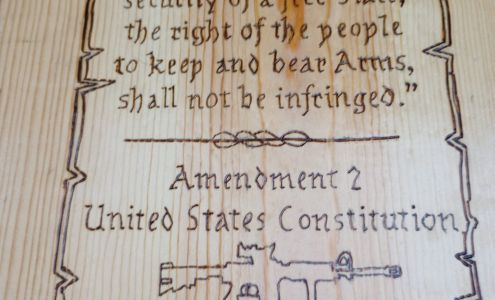 security of a free State,
the right of the people
to keep and bear Arms,
shall not be infringed."
Amendment 2
United States Constitution